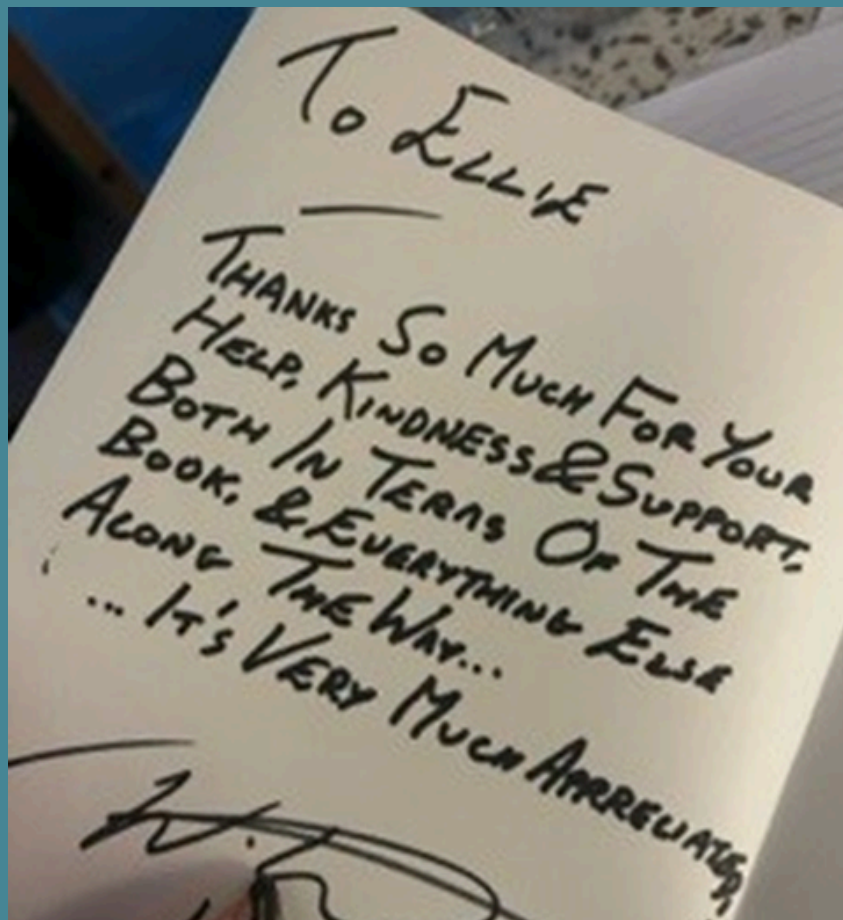 To Ellie
Thanks So Much For Your
Help, Kindness & Support,
Both In Terms Of The
Book, & Everything Else
Along The Way...
... It's Very Much Appreciated,